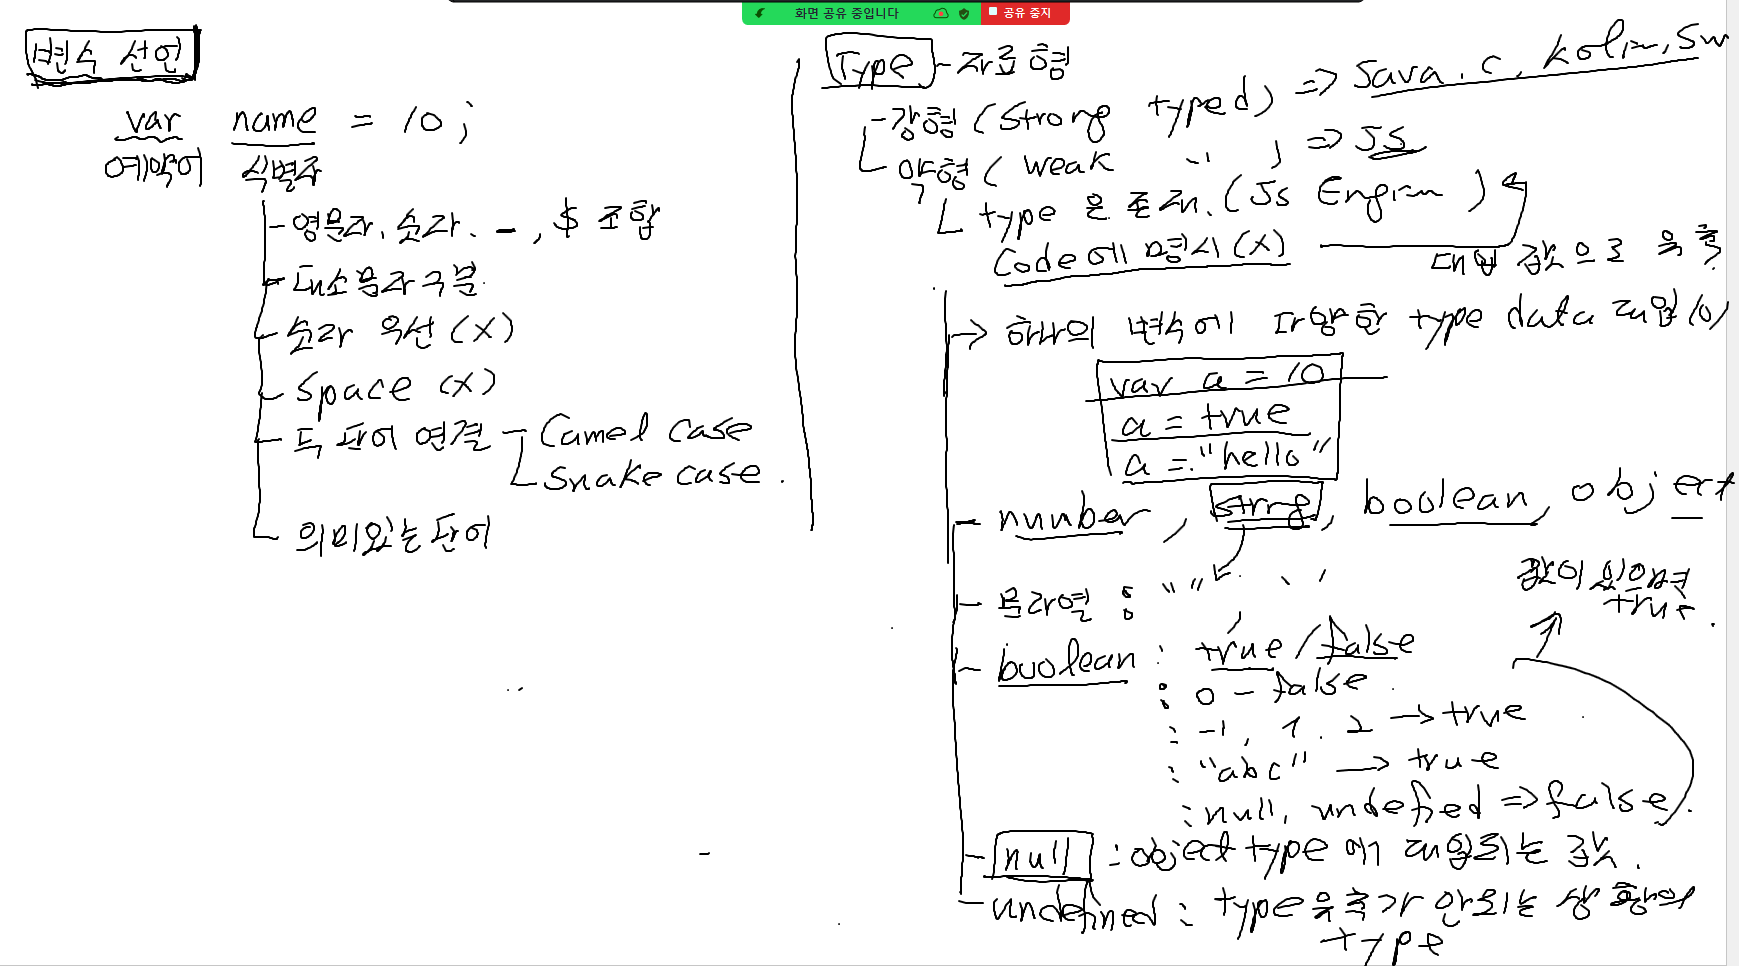 화면 공유 중입니다 공유 중지
변수 선언
var name = 10 ;
예약어 식별자
- 영문자, 숫자, _ , $ 조합
- 대소문자 구분
- 숫자 우선 (X)
- Space (X)
- 두 단어 연결 - Camel case
Snake case .
- 의미있는 단어
Type - 자료형
- 강형 (Strong typed) => Java, C, Kotlin, Sw
약형 ( weak " ) => JS
type은 존재. (Js Engine)
Code에 명시(X) 대입 값으로 유추
-> 하나의 변수에 다양한 type data 대입(O)
var a = 10
a = true
a = "hello"
- number, string, boolean, object
- 문자열 : " " ' '
- boolean : true / false
: 0 - false
: -1, 1, 2 -> true
: "abc" -> true
: null, undefied => false.
값이 있으면
true.
- null : object type에 대입되는 값.
- undefined : type 유추가 안되는 상황의
type